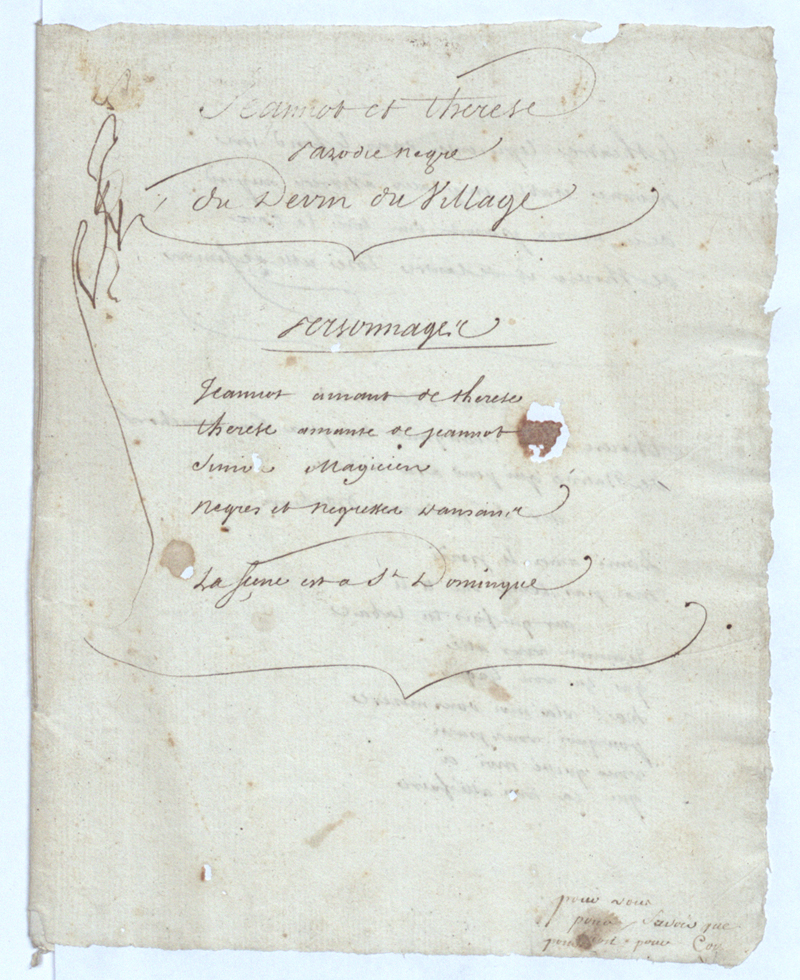 Jeannot et Therese
Parodie negre
du Devin du Village
Personnages
Jeannot amant de therese
therese amante de jeannot
Simi Magicien
Negres et Negresses Dansans
La scene est a St Domingue
pour vous
pour savoir que
pour